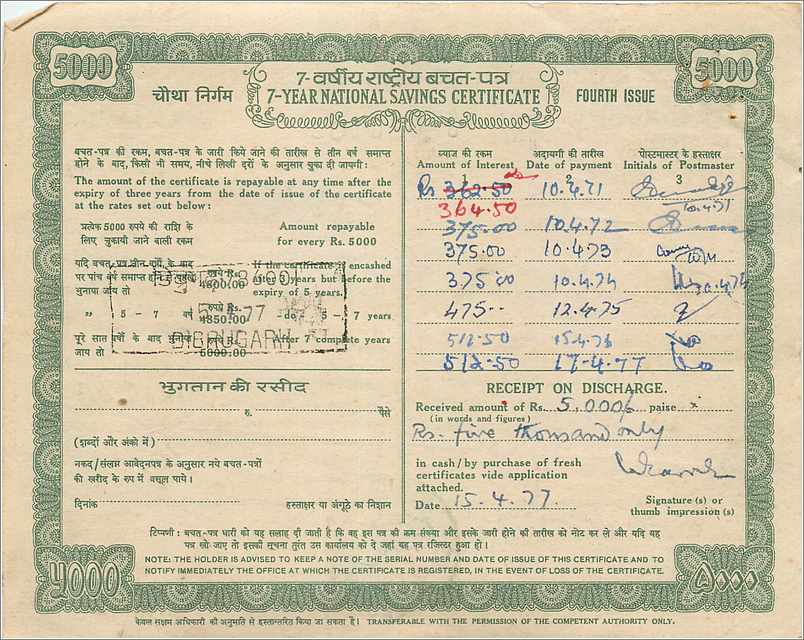 5000
5000
7-वर्षीय राष्ट्रीय बचत-पत्र
चौथा निर्गम
7-YEAR NATIONAL SAVINGS CERTIFICATE
FOURTH ISSUE
बचत-पत्र की रकम, बचत-पत्र के जारी किये जाने की तारीख से तीन वर्ष समाप्त
होने के बाद, किसी भी समय, नीचे लिखी दरों के अनुसार चुका दी जाएगी :
The amount of the certificate is repayable at any time after the
expiry of three years from the date of issue of the certificate
at the rates set out below :
प्रत्येक 5000 रुपये की राशि के
लिए चुकायी जाने वाली रकम
Amount repayable
for every Rs. 5000
यदि बचत-पत्र तीन वर्ष के बाद
पर पांच वर्ष समाप्त होने से पहले
भुनाया जाय तो
रुपये Rs.
4800.00
If the certificate is encashed
after 3 years but before the
expiry of 5 years.
" 5 - 7 वर्ष
रुपये Rs.
4850.00
-do- 5 - 7 years
पूरे सात वर्षों के बाद भुनाया
जाय तो
5000.00
After 7 complete years
DIBRUGARH
भुगतान की रसीद
रु. पैसे
(शब्दों और अंकों में)
नकद/संलग्न आवेदनपत्र के अनुसार नये बचत-पत्रों
की खरीद के रूप में वसूल पाये।
दिनांक
हस्ताक्षर या अंगूठे का निशान
ब्याज की रकम अदायगी की तारीख पोस्टमास्टर के हस्ताक्षर
Amount of Interest Date of payment Initials of Postmaster
1 2 3
Rs 362.50 10.4.71
364.50 10.4.71
375.00 10.4.72
375.00 10.4.73
375.00 10.4.74
475-- 12.4.75
512.50 15.4.76
512-50 17-4-77
RECEIPT ON DISCHARGE.
Received amount of Rs. 5,000/- paise x
(in words and figures)
Rs. five thousand only
in cash/by purchase of fresh
certificates vide application
attached.
Date 15.4.77
Signature (s) or
thumb impression (s)
टिप्पणी : बचत-पत्र धारी को यह सलाह दी जाती है कि वह इस पत्र की क्रम संख्या और इसके जारी होने की तारीख को नोट कर ले और यदि यह
पत्र खो जाए तो इसकी सूचना तुरंत उस कार्यालय को दे जहां यह पत्र रजिस्टर हुआ हो।
NOTE: THE HOLDER IS ADVISED TO KEEP A NOTE OF THE SERIAL NUMBER AND DATE OF ISSUE OF THIS CERTIFICATE AND TO
NOTIFY IMMEDIATELY THE OFFICE AT WHICH THE CERTIFICATE IS REGISTERED, IN THE EVENT OF LOSS OF THE CERTIFICATE.
५०००
केवल सक्षम अधिकारी की अनुमति से हस्तान्तरित किया जा सकता है। TRANSFERABLE WITH THE PERMISSION OF THE COMPETENT AUTHORITY ONLY.